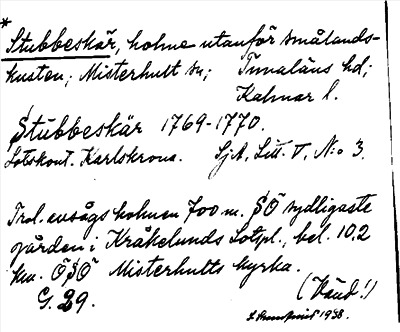 *
Stubbeskär, holme utanför smålands-
kusten; Misterhult sn; Tunaläns hd;
Kalmar l.
Stubbeskär 1769-1770.
Lotskont. Karlskrona. SjA, Litt. V, N:o 3.
Trol. avsågs holmen 700 m. SO sydligaste
gården i Kråkelunds Lotspl., bel. 10,2
km. OSO Misterhults kyrka.
G. 29. (Vänd!)
1938.